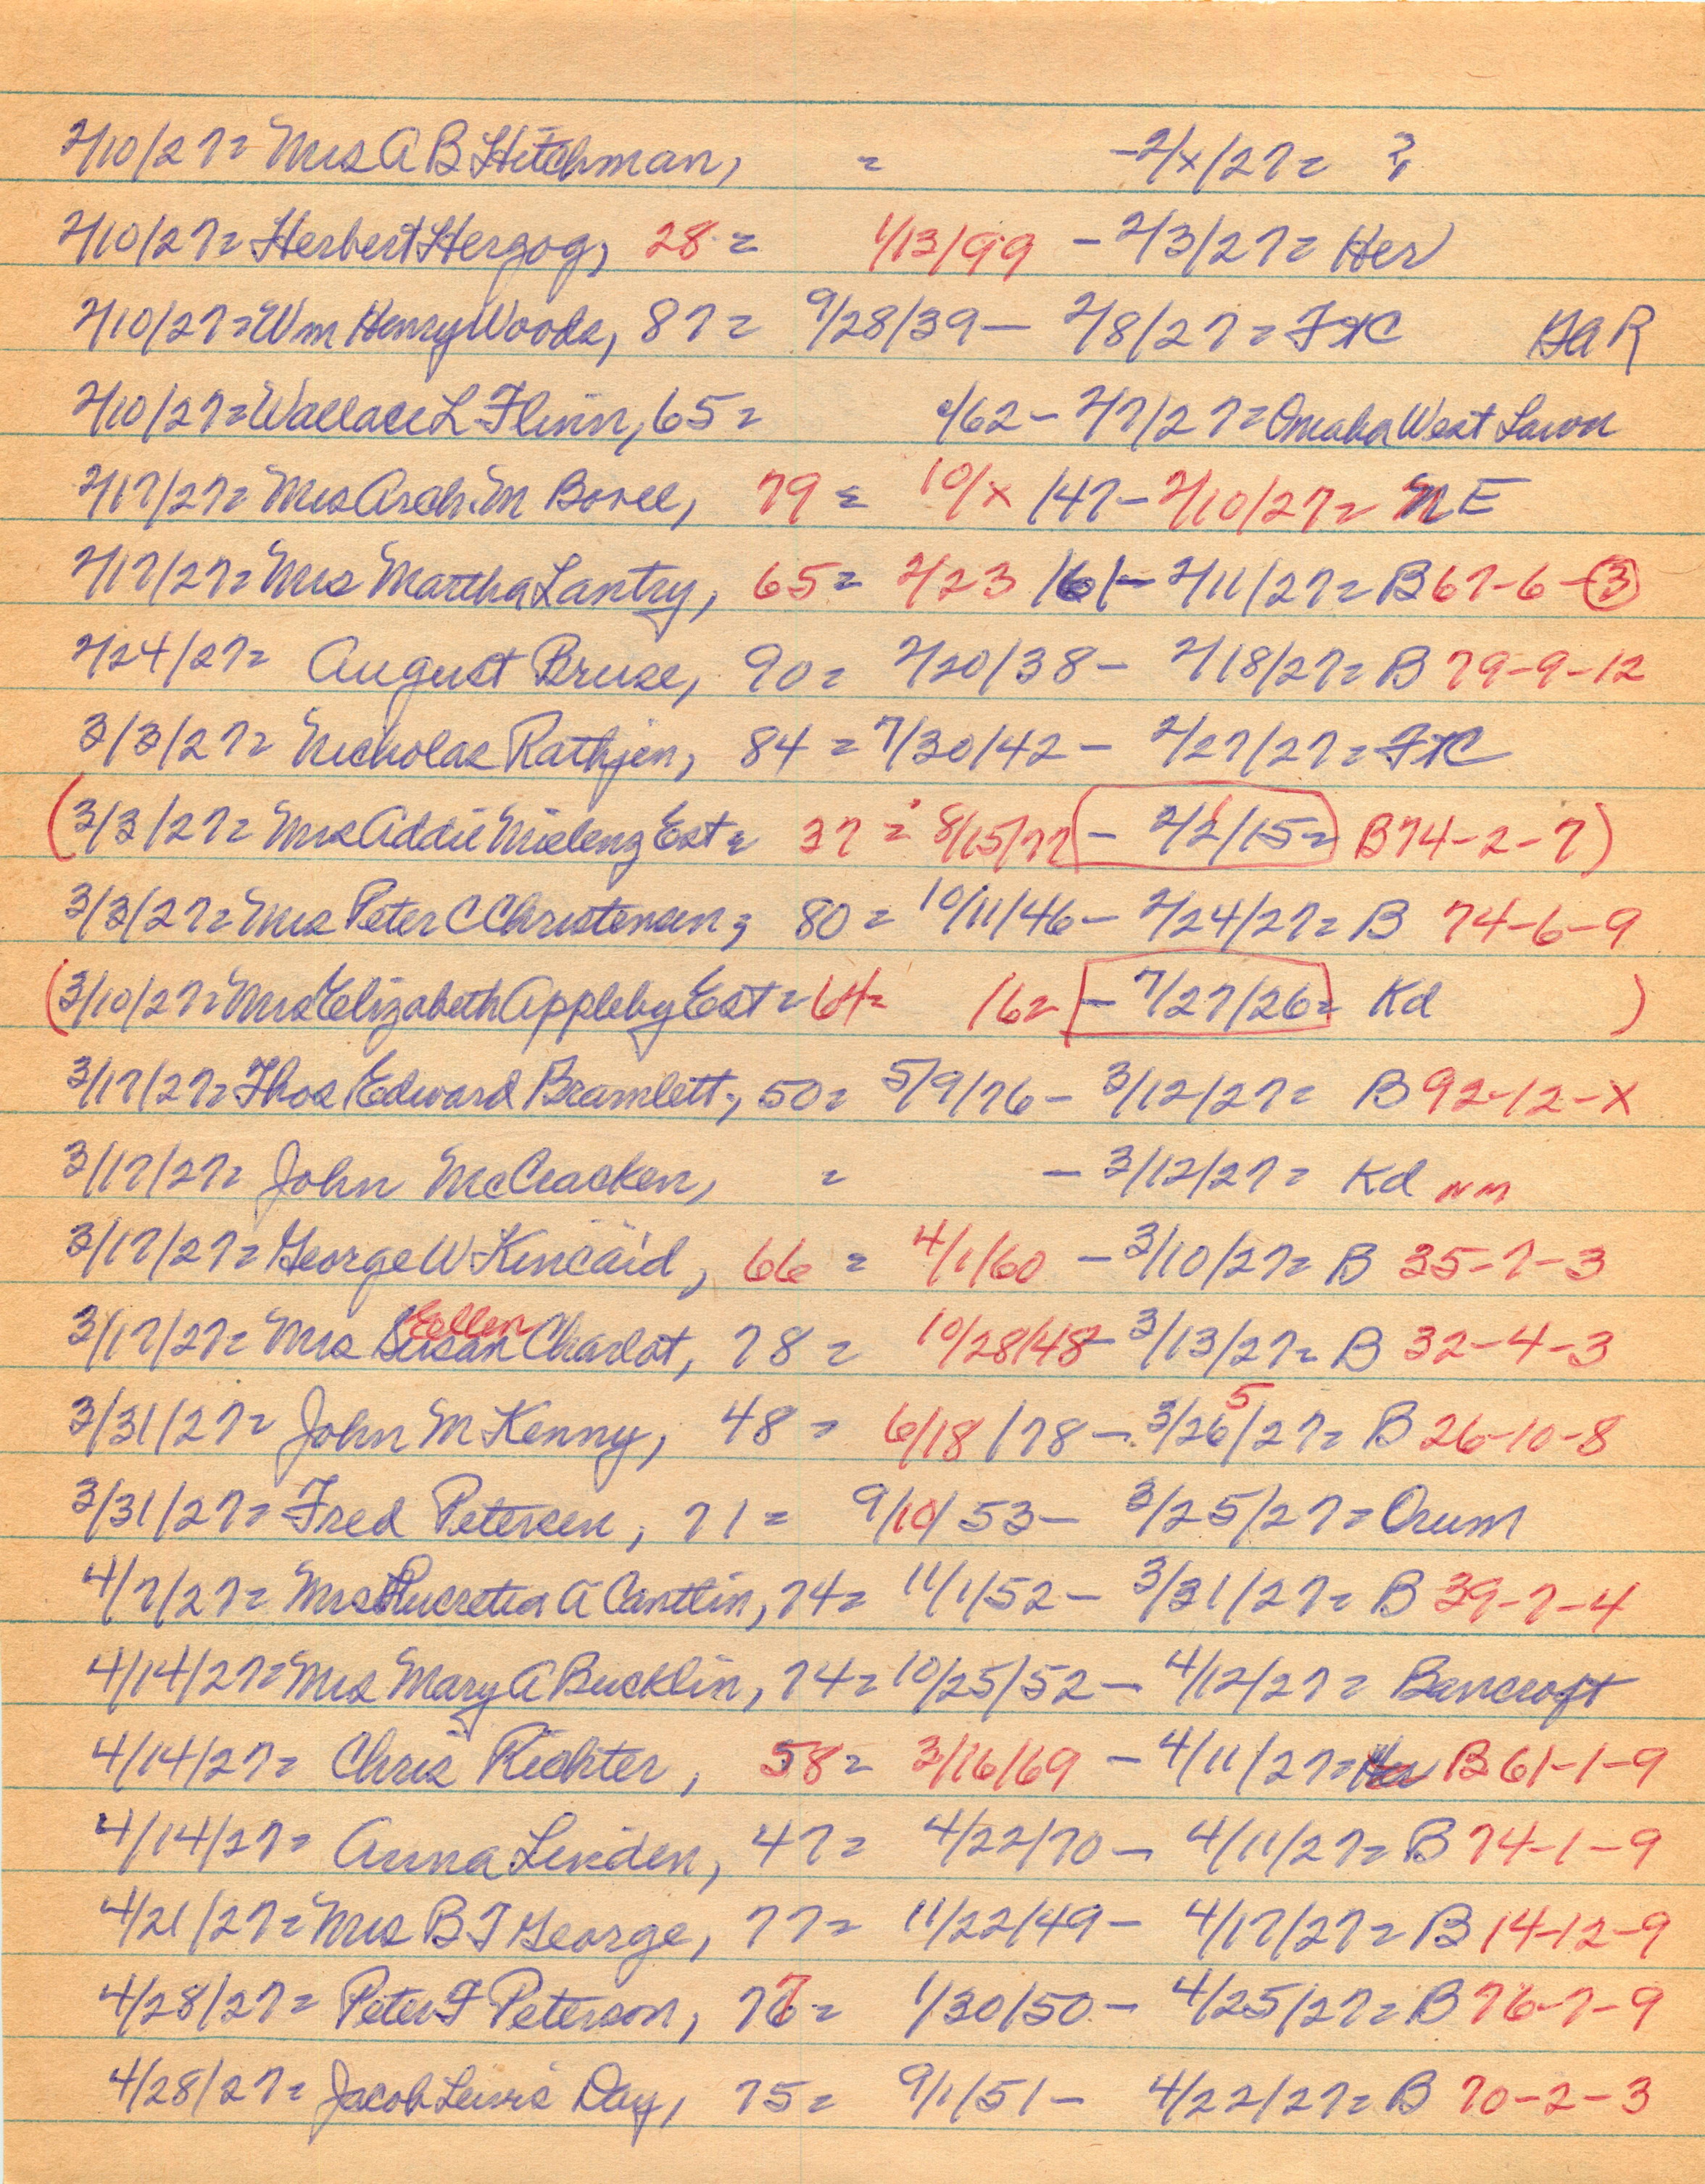 2/10/27= Mrs A B Hitchman, = -2/x/27= ?
2/10/27= Herbert Herzog, 28= 1/13/99 - 2/3/27= Her
2/10/27= Wm Henry Woods, 87= 9/28/39- 2/8/27= FtC GAR
2/10/27= Wallace L Flinn, 65= /62- 2/7/27= Omaha West Lawn
2/17/27= Mrs Arch. M Bovee, 79= 10/x/47- 2/10/27= NE
2/17/27= Mrs Martha Lantry, 65= 2/23/61- 2/11/27= B 67-6-3
2/24/27= August Bruse, 90= 2/20/38- 2/18/27= B 79-9-12
3/3/27= Nicholas Rathjen, 84= 7/30/42- 2/27/27= FtC
(3/3/27= Mrs Addie Mielenz Est= 37= 8/15/77 - 2/2/15= B74-2-7)
3/3/27= Mrs Peter C Christensen, 80= 10/11/46- 2/24/27= B 74-6-9
(3/10/27= Mrs Elizabeth Appleby Est= 64= /62 - 7/27/26= Kd )
3/17/27= Thos Edward Bramlett, 50= 5/9/76- 3/12/27= B 92-12-x
3/17/27= John McCracken, = - 3/12/27= Kd nm
3/17/27= George W Kincaid, 66= 4/1/60 - 3/10/27= B 35-7-3
3/17/27= Mrs Susan Ellen Charlot, 78= 10/28/48- 3/13/27= B 32-4-3
3/31/27= John M Kenny, 48= 6/18/78- 3/26 5/27= B 26-10-8
3/31/27= Fred Petersen, 71= 9/10/53- 3/25/27= Orum
4/7/27= Mrs Lucretia A Cantlin, 74= 11/1/52- 3/31/27= B 39-7-4
4/14/27= Mrs Mary A Bucklin, 74= 10/25/52- 4/12/27= Bancroft
4/14/27= Chris Richter, 58= 3/16/69 - 4/11/27= B 61-1-9
4/14/27= Anna Linden, 47= 4/22/70- 4/11/27= B 74-1-9
4/21/27= Mrs B T George, 77= 11/22/49- 4/17/27= B 14-12-9
4/28/27= Peter F Peterson, 77= 1/30/50- 4/25/27= B 76-7-9
4/28/27= Jacob Lewis Day, 75= 9/1/51- 4/22/27= B 70-2-3